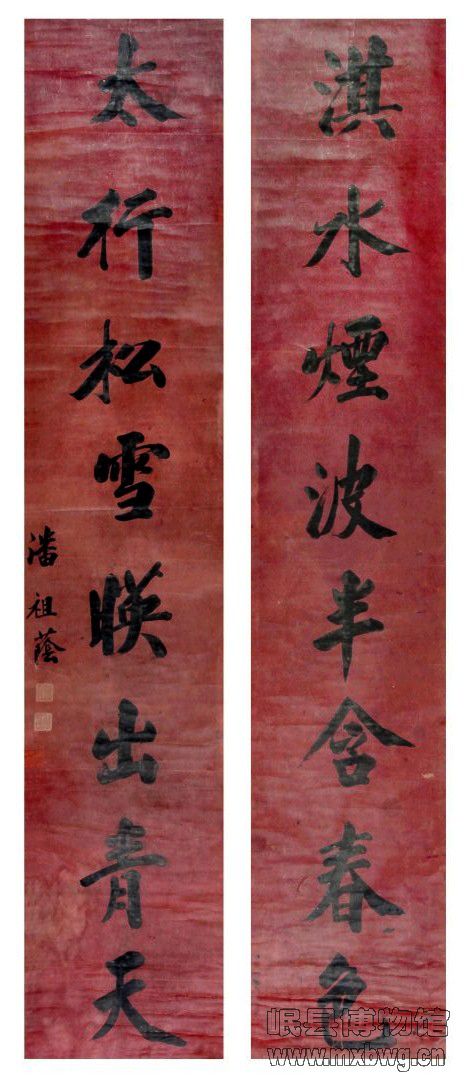 淇水煙波半含春色
太行松雪暎出青天
潘祖蔭
岷县博物馆
www.mxbwg.cn